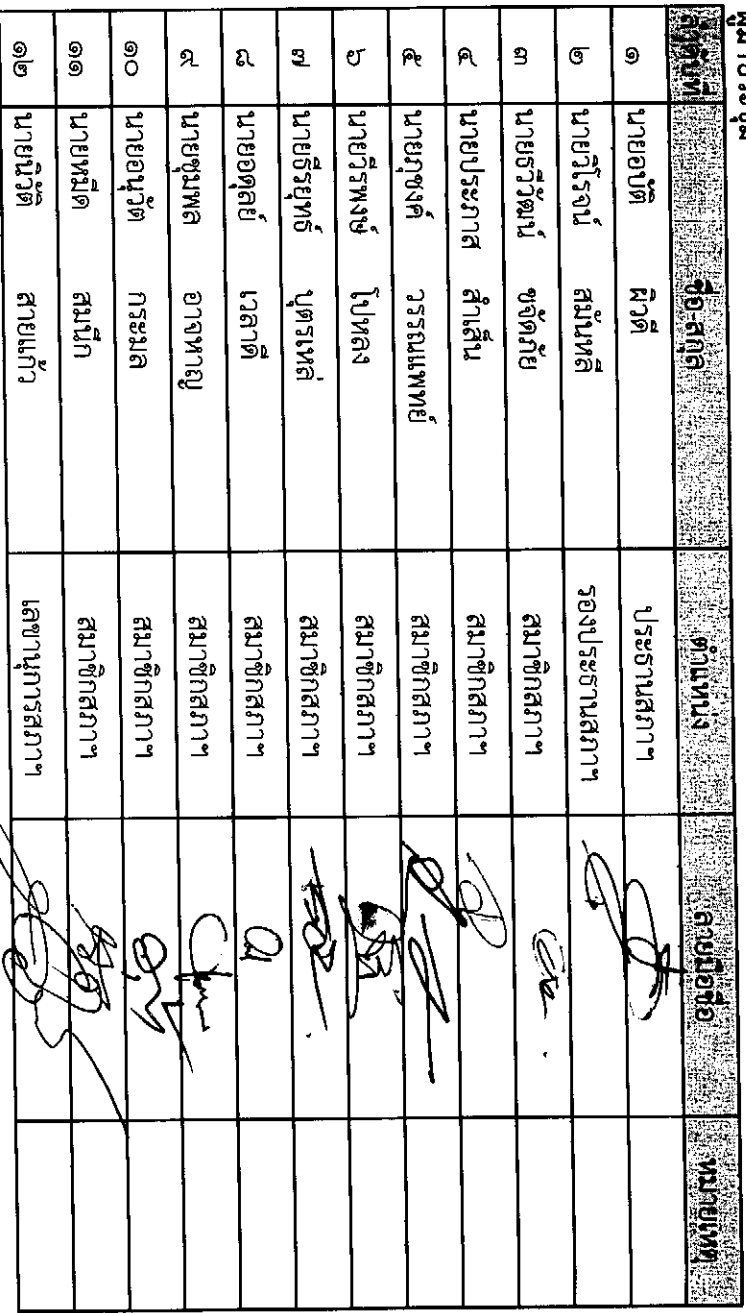 ผู้มาประชุม
ลำดับที่ ชื่อ-สกุล ตำแหน่ง ลายมือชื่อ หมายเหตุ
๑ นายอบัติ ผิวดี ประธานสภาฯ
๒ นายวิโรจน์ สมันหลี รองประธานสภาฯ
๓ นายธีวัฒน์ ขจัดภัย สมาชิกสภาฯ
๔ นายประภาส สำเส็น สมาชิกสภาฯ
๕ นายภุชงค์ วรรณแพทย์ สมาชิกสภาฯ
๖ นายวีรพงษ์ โปหลง สมาชิกสภาฯ
๗ นายธีรยุทธ์ บุตรเหล่ สมาชิกสภาฯ
๘ นายอดุลย์ เวลาดี สมาชิกสภาฯ
๙ นายชุมพล อาจหาญ สมาชิกสภาฯ
๑๐ นายอนุวัต กระมล สมาชิกสภาฯ
๑๑ นายหมีด สมนึก สมาชิกสภาฯ
๑๒ นายนิวัติ สายแก้ว เลขานุการสภาฯ